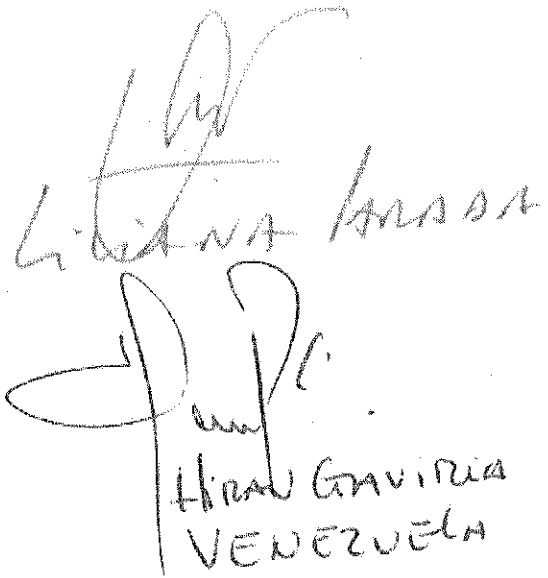 Liliana Parada
HiRAN GAViRiA
VENEZUELA